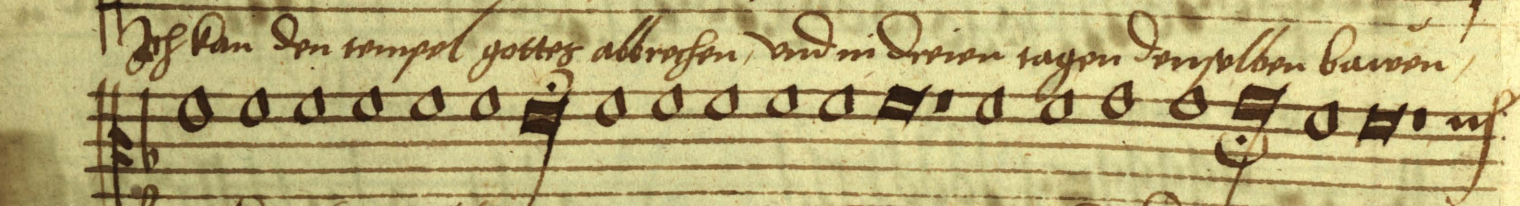 Ich kan den tempel gottes abbrechen, vnd in dreien tagen denselben bawen,